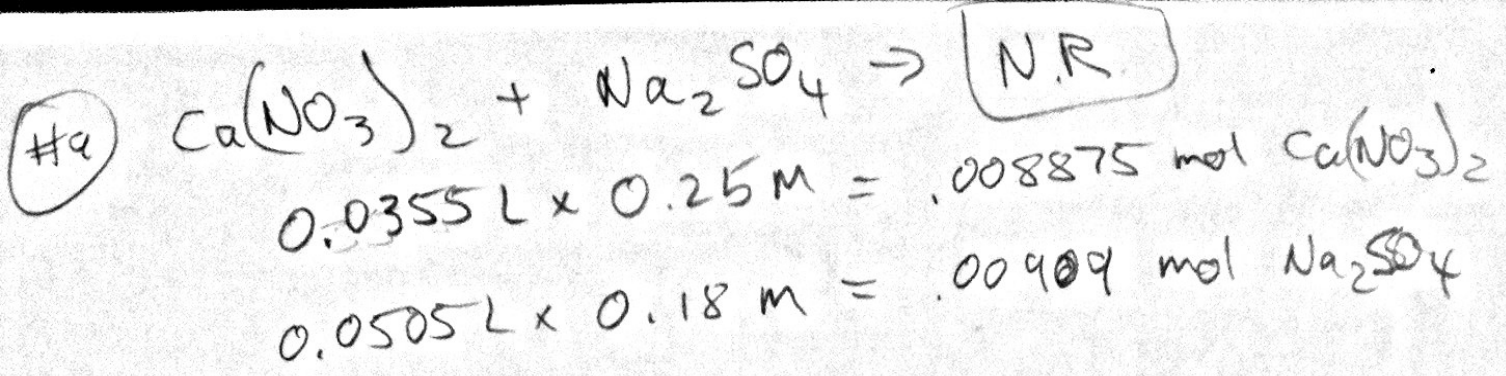 #9 Ca(NO₃)₂ + Na₂SO₄ → N.R.
0.0355 L x 0.25 M = .008875 mol Ca(NO₃)₂
0.0505 L x 0.18 M = .00909 mol Na₂SO₄